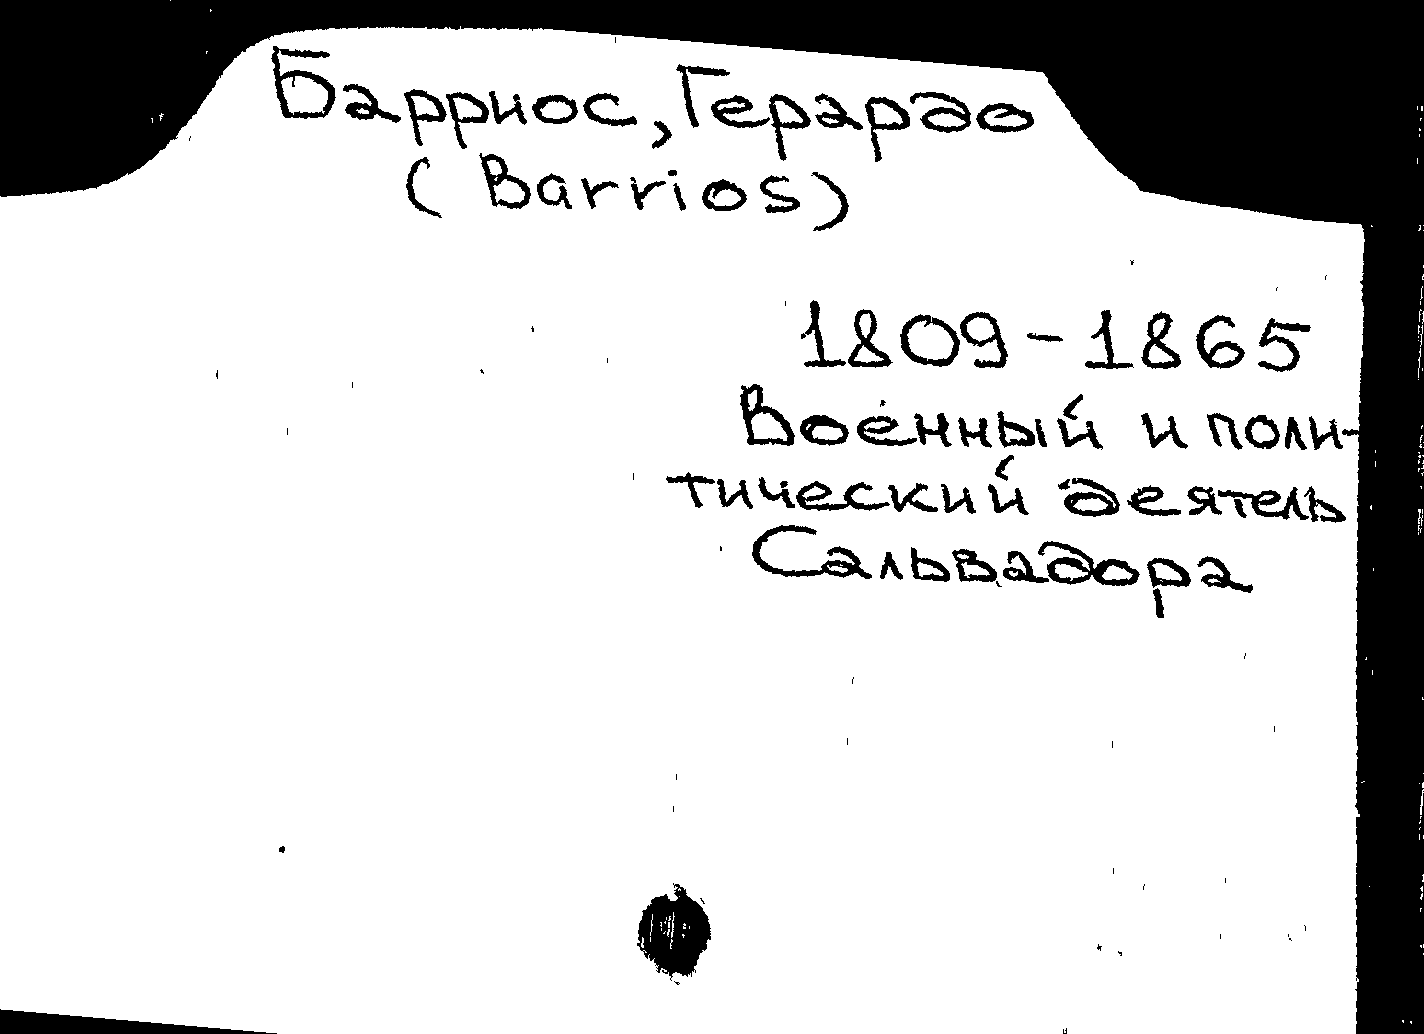 Барриос, Герардо
(Barrios)
1809-1865
Военный и поли-
тический деятель
Сальвадора